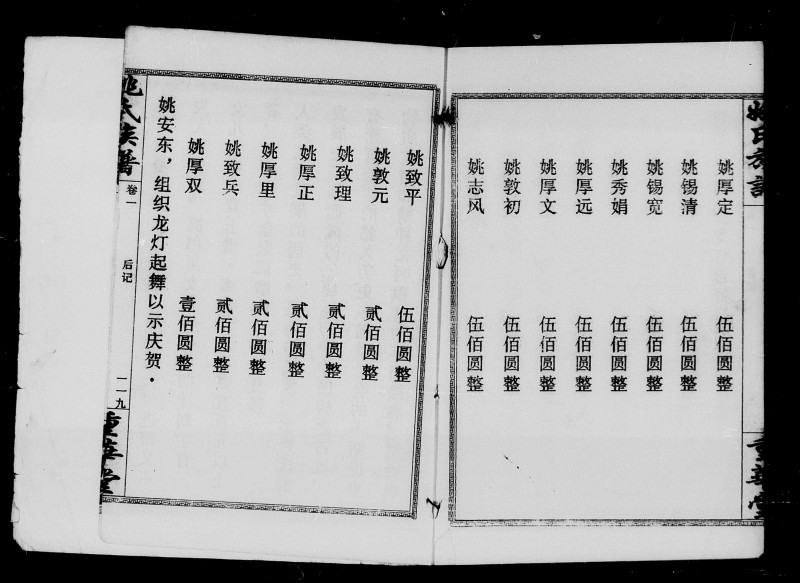 姚氏族譜
重華堂
姚厚定　伍佰圆整
姚锡清　伍佰圆整
姚锡宽　伍佰圆整
姚秀娟　伍佰圆整
姚厚远　伍佰圆整
姚厚文　伍佰圆整
姚敦初　伍佰圆整
姚志风　伍佰圆整
姚致平　伍佰圆整
姚敦元　贰佰圆整
姚致理　贰佰圆整
姚厚正　贰佰圆整
姚厚里　贰佰圆整
姚致兵　贰佰圆整
姚厚双　壹佰圆整
姚安东，组织龙灯起舞以示庆贺．
姚氏族譜
卷一
后记
一一九
重華堂